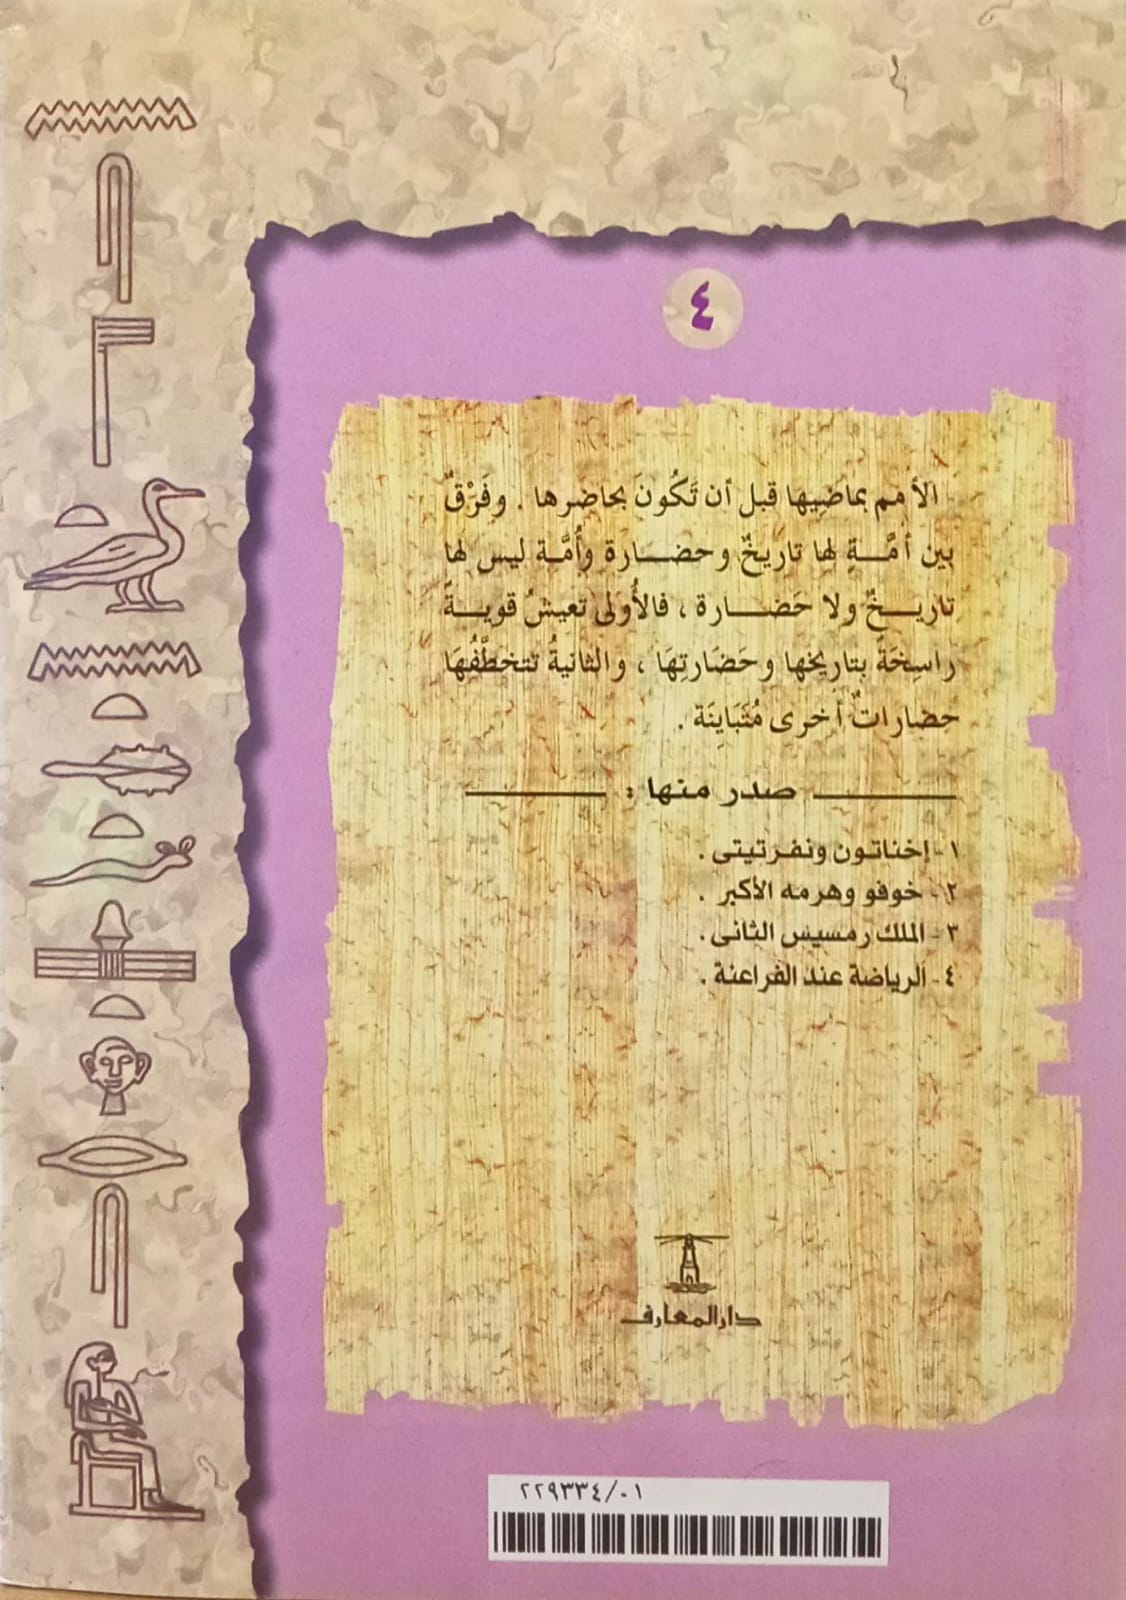 ٤
الأمم بماضِيها قبل أن تَكُونَ بحاضرها . وفَرْقٌ
بين أمَّةٍ لها تاريخٌ وحضارة وأُمَّة ليس لها
تاريخٌ ولا حَضارة ، فالأُولى تعيشُ قويةً
راسِخَةً بتاريخها وحَضَارتِهَا ، والثانيةُ تتخطَّفُهَا
حضاراتٌ أخرى مُتَبَاينَة .
صدر منها :
١- إخناتون ونفرتيتى .
٢- خوفو وهرمه الأكبر .
٣- الملك رمسيس الثانى .
٤- الرياضة عند الفراعنة .
دارالمعارف
٢٢٩٣٣٤/٠١